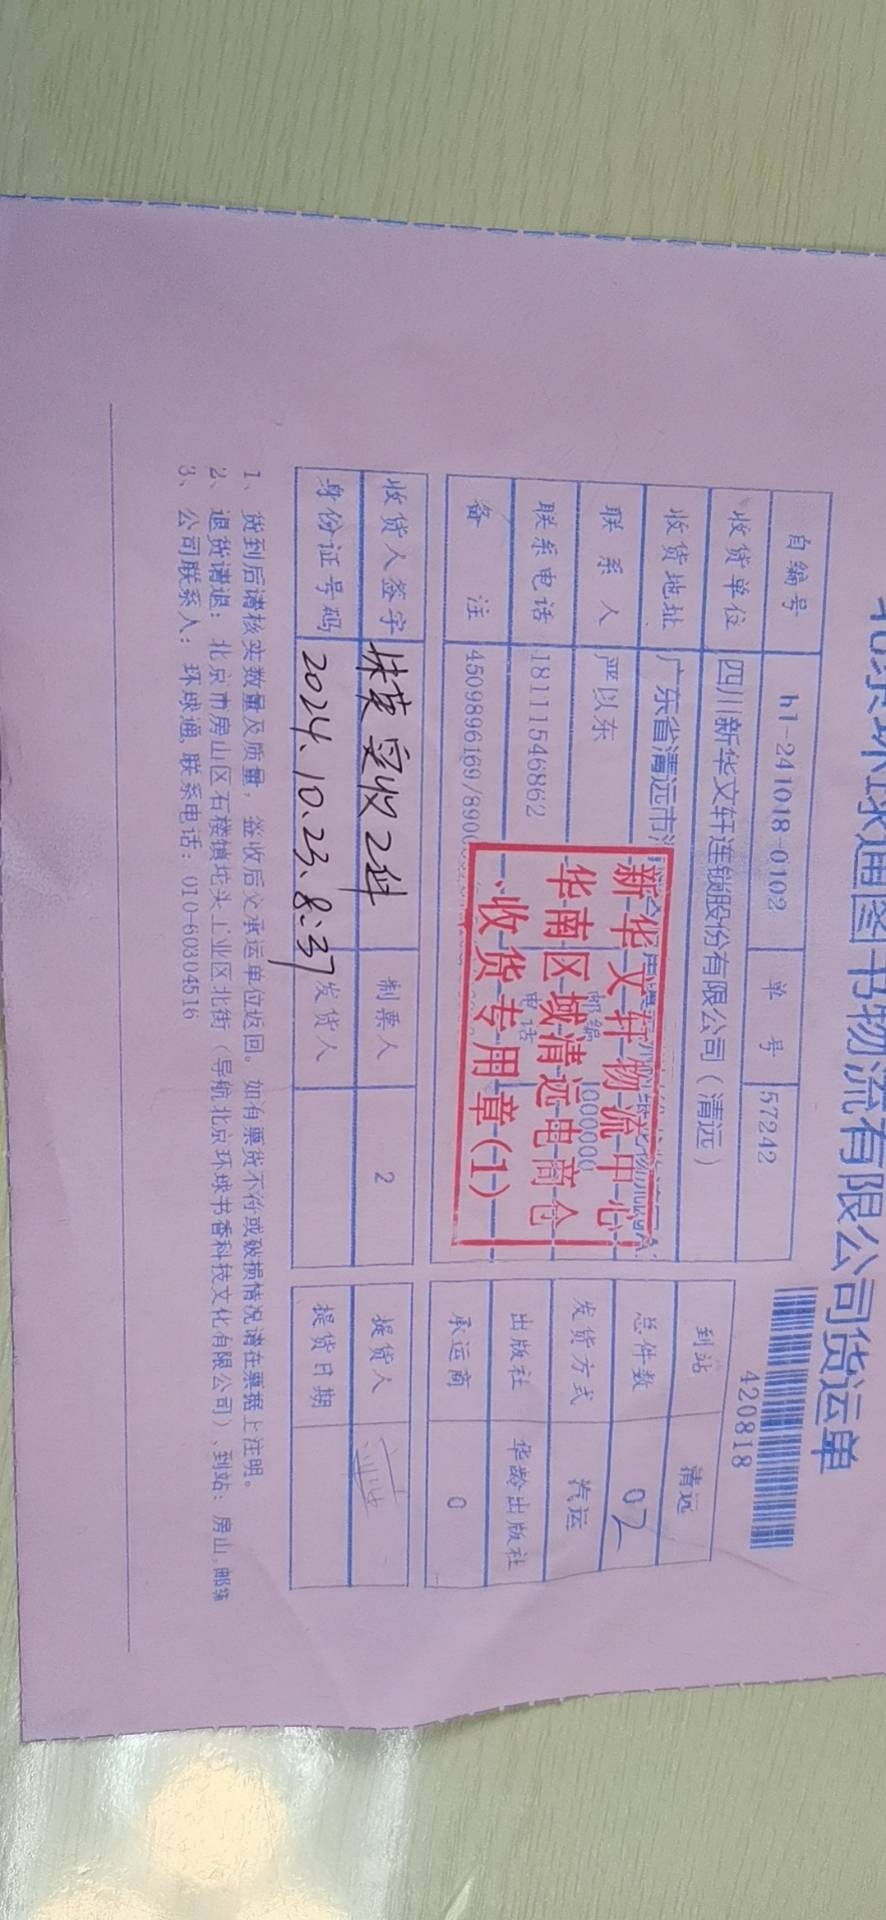 北京环球通图书物流有限公司货运单
420818
自编号 hl-241018-0102 单 号 57242
收货单位 四川新华文轩连锁股份有限公司（清远）
到站 清远
收货地址 广东省清远市
总件数 02
联 系 人 严以东 邮编 1000000
发货方式 汽运
联系电话 18111546862 电话
出版社 华龄出版社
备 注 4509896169/890
承运商 0
新华文轩物流中心
华南区域清远电商仓
收货专用章(1)
收货人签字 实收2件 制票人 2 提货人
身份证号码 2024.10.23.8:37 发货人 提货日期
1、货到后请核实数量及质量，签收后交承运单位返回。如有票货不符或破损情况请在票据上注明。
2、退货请退：北京市房山区石楼镇坨头工业区北街（导航北京环球书香科技文化有限公司）,到站：房山,邮编
3、公司联系人：环球通,联系电话：010-60304516